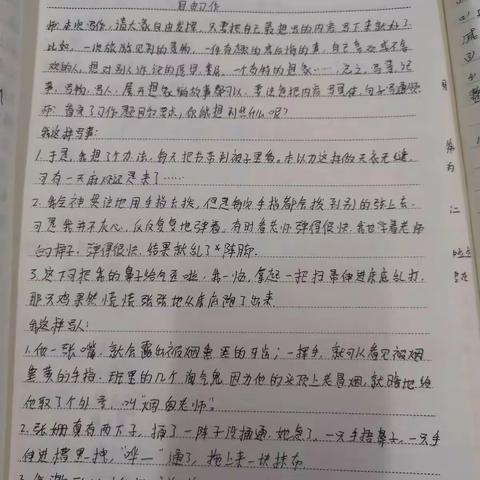 自由习作
师:本次写作,请大家自由发挥,只要把自己最想写的内容写下来就好了。
比如,一次旅游见到的景物,一件有趣的或后悔的事,自己喜欢或不喜
欢的人,想对别人诉说的愿望、意见,一个奇特的想象……,总之,写景、记
事、写物、写人、展开想象编故事都可以,要注意把内容写具体,句子写通顺。
师:看来了习作题目和要求,你能想到些什么呢?
我这样写事:
1.于是,我想了个办法,每天把书带到被子里看。本以为这样做天衣无缝,
可有一天麻烦还是来了……
2.我全神贯注地用手指去拨,但是每次手指都会拨到别的弦上去。
可是我并不灰心,反反复复地弹着。有时看老师弹得很快,我也学着老师
的样子,弹得很快,结果就乱了阵脚。
3.这下可把我的鼻子给气歪啦,我一恼,拿起一把扫帚伸进床底乱打,
那只鸡果然慌慌张张地从床底跑了出来。
我这样写人:
1.他一张嘴,就会露出被烟熏黑的牙齿;一挥手,就可以看见被烟
熏黄的手指。班里的几个淘气鬼,因为他的头顶上老冒烟,就暗地给
他取了个外号,叫“烟囱老师”。
2.张姐真有两下子,捅了一阵子没捅通,她急了,一只手捂鼻子,一只手
伸进槽里一拽,“哗——”通了,拖上来一块抹布